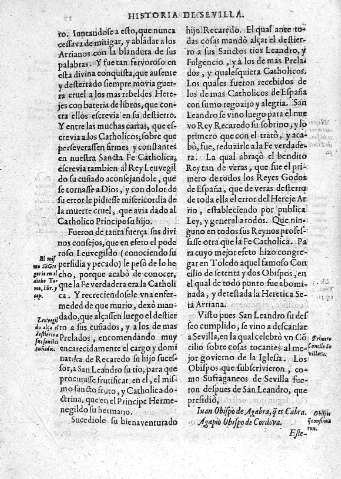 HISTORIA DE SEVILLA.
ro. Juntandose a esto, que nunca
cessava de mitigar, y ablãdar a los
Arrianos con la blandura de sus
palabras. Y fue tan fervoroso en
esta divina conquista, que ausente
y desterrado siempre movia guerra
cruel a los mas rebeldes Herejes
con bateria de libros, que contra
ellos escrevia en su destierro.
Y entre las muchas cartas, que escrevia
a los Catholicos, sobre que
perseverassen firmes y constantes
en nuestra Sancta Fe Catholica,
escrevia tambien al Rey Leuvegildo
su cuñado aconsejandole, que
se tornasse a Dios, y con dolor de
su error le pidiesse misericordia de
la muerte cruel, que avia dado al
Catholico Principe su hijo.
Fueron de tanta fuerça sus divinos
consejos, que en efeto el poderoso
Leuvegildo (conociendo su
perfidia y pecado) le pesò de lo hecho,
porque acabò de conocer,
que la Fe verdadera era la Catholica.
Y recreciendosele vna enfermedad
de que murio, dexò mandado,
que alçassen luego el destierro
a sus cuñados, y a los de mas
Prelados, encomendando muy
encarecidamente el cargo y dominatura
de Recaredo su hijo sucessor,
a San Leandro su tio, para que
procurasse frutificar en el, el mismo
sancto fruto, y Catholica doctrina,
que en el Principe Hermenegildo
su hermano.
Sucediole su bienaventurado
hijo Recaredo. El qual ante todas
cosas mandò alçar el destierro
a sus Sanctos tios Leandro, y
Fulgencio, y a los de mas Prelados,
y qualesquiera Catholicos.
Los quales fueron recebidos de
los de mas Catholicos de España
con sumo regozijo y alegria. San
Leandro se vino luego para el nuevo
Rey Recaredo su sobrino, y lo
primero que con el tratò, y acabò,
fue, reduzirle a la Fe verdadera.
La qual abraçò el bendito
Rey tan de veras, que fue el primero
de todos los Reyes Godos
de España, que de veras desterrò
de toda ella el error del Hereje Arrio,
estableciendo por publica
Ley, y general a todos. Que ninguno
en todos sus Reynos professasse
otra que la Fe Catholica. Para
cuyo mejor efeto hizo congregar
en Toledo aquel famoso Concilio
de setenta y dos Obispos, en
el qual de todo punto fue abominada,
y desterada la Heretica Seta
Arriana.
Visto pues San Leandro su desseo
cumplido, se vino a descansar
a Sevilla, en la qual celebrò vn Cõcilio
sobre cosas tocantes al mejor
govierno de la Iglesia. Los
Obispos que subscrivieron, como
Sufraganeos de Sevilla fueron
despues de San Leandro, que
presidiò,
Iuan Obispo de Agabra, q̃ es Cabra.
Agapio Obispo de Cordova.
Este-
Leuvegildo
alça el
destierro a
sus sanctos
cuñados.
Primero
Concilio de
Sevilla.